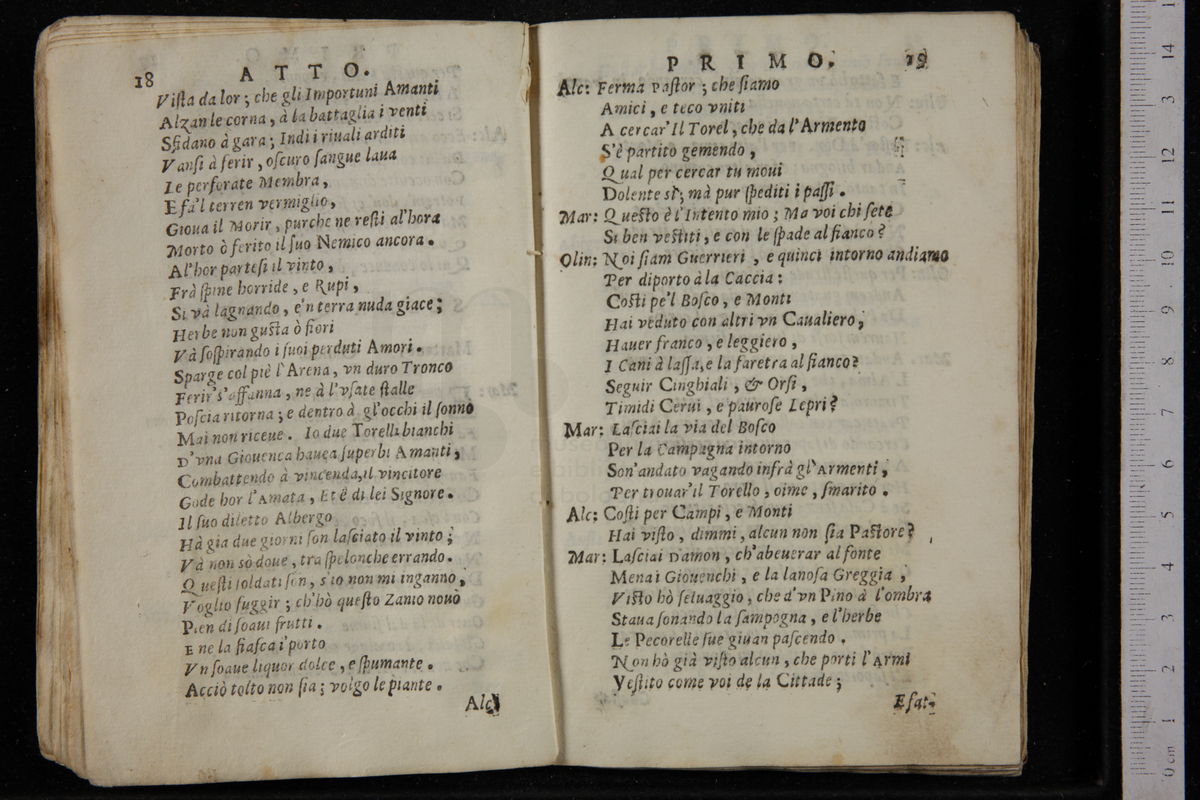 18 ATTO.
Viſta da lor; che gli Importuni Amanti
Alzan le corna, à la battaglia i venti
Sfidano à gara; Indi i riuali arditi
Vanſi à ferir, oſcuro ſangue laua
Le perforate Membra,
E fa'l terren vermiglio,
Gioua il Morir, purche ne reſti al'hora
Morto ò ferito il ſuo Nemico ancora.
Al'hor parteſi il vinto,
Frà ſpine horride, e Rupi,
Si và lagnando, e'n terra nuda giace;
Herbe non guſta ò fiori
Và ſoſpirando i ſuoi perduti Amori.
Sparge col piè l'Arena, vn duro Tronco
Ferir s'affanna, ne à l'vſate ſtalle
Poſcia ritorna; e dentro à gl'occhi il ſonno
Mai non riceue. Io due Torelli bianchi
D'vna Giouenca hauea ſuperbi Amanti,
Combattendo à vincenda, il vincitore
Gode hor l'Amata, Et è di lei Signore.
Il ſuo diletto Albergo
Hà gia due giorni ſon laſciato il vinto;
Và non sò doue, tra ſpelonche errando.
Queſti ſoldati ſon, s'io non mi inganno,
Voglio fuggir; ch'hò queſto Zanio nouo
Pien di ſoaui frutti.
E ne la fiaſca i'porto
Vn ſoaue liquor dolce, e ſpumante.
Acciò tolto non ſia; volgo le piante.
Alc
PRIMO. 19
Alc: Ferma Paſtor; che ſiamo
Amici, e teco vniti
A cercar'Il Torel, che da l'Armento
S'è partito gemendo,
Qual per cercar tu moui
Dolente sì; mà pur ſpediti i paſſi.
Mar: Queſto è l'Intento mio; Ma voi chi ſete
Si ben veſtiti, e con le ſpade al fianco?
Olin: Noi ſiam Guerrieri, e quinci intorno andiamo
Per diporto à la Caccia:
Coſti pe'l Boſco, e Monti
Hai veduto con altri vn Caualiero,
Hauer franco, e leggiero,
I Cani à laſſa, e la faretra al fianco?
Seguir Cinghiali, & Orſi,
Timidi Cerui, e pauroſe Lepri?
Mar: Laſciai la via del Boſco
Per la Campagna intorno
Son'andato vagando infrà gl'Armenti,
Per trouar'il Torello, oime, ſmarito.
Alc: Coſti per Campi, e Monti
Hai viſto, dimmi, alcun non ſia Paſtore?
Mar: Laſciai Damon, ch'abeuerar al fonte
Menai Giouenchi, e la lanoſa Greggia,
Viſto hò ſeluaggio, che d'vn Pino à l'ombra
Staua ſonando la ſampogna, e l'herbe
Le Pecorelle ſue giuan paſcendo.
Non hò già viſto alcun, che porti l'Armi
Veſtito come voi de la Cittade;
E fat-